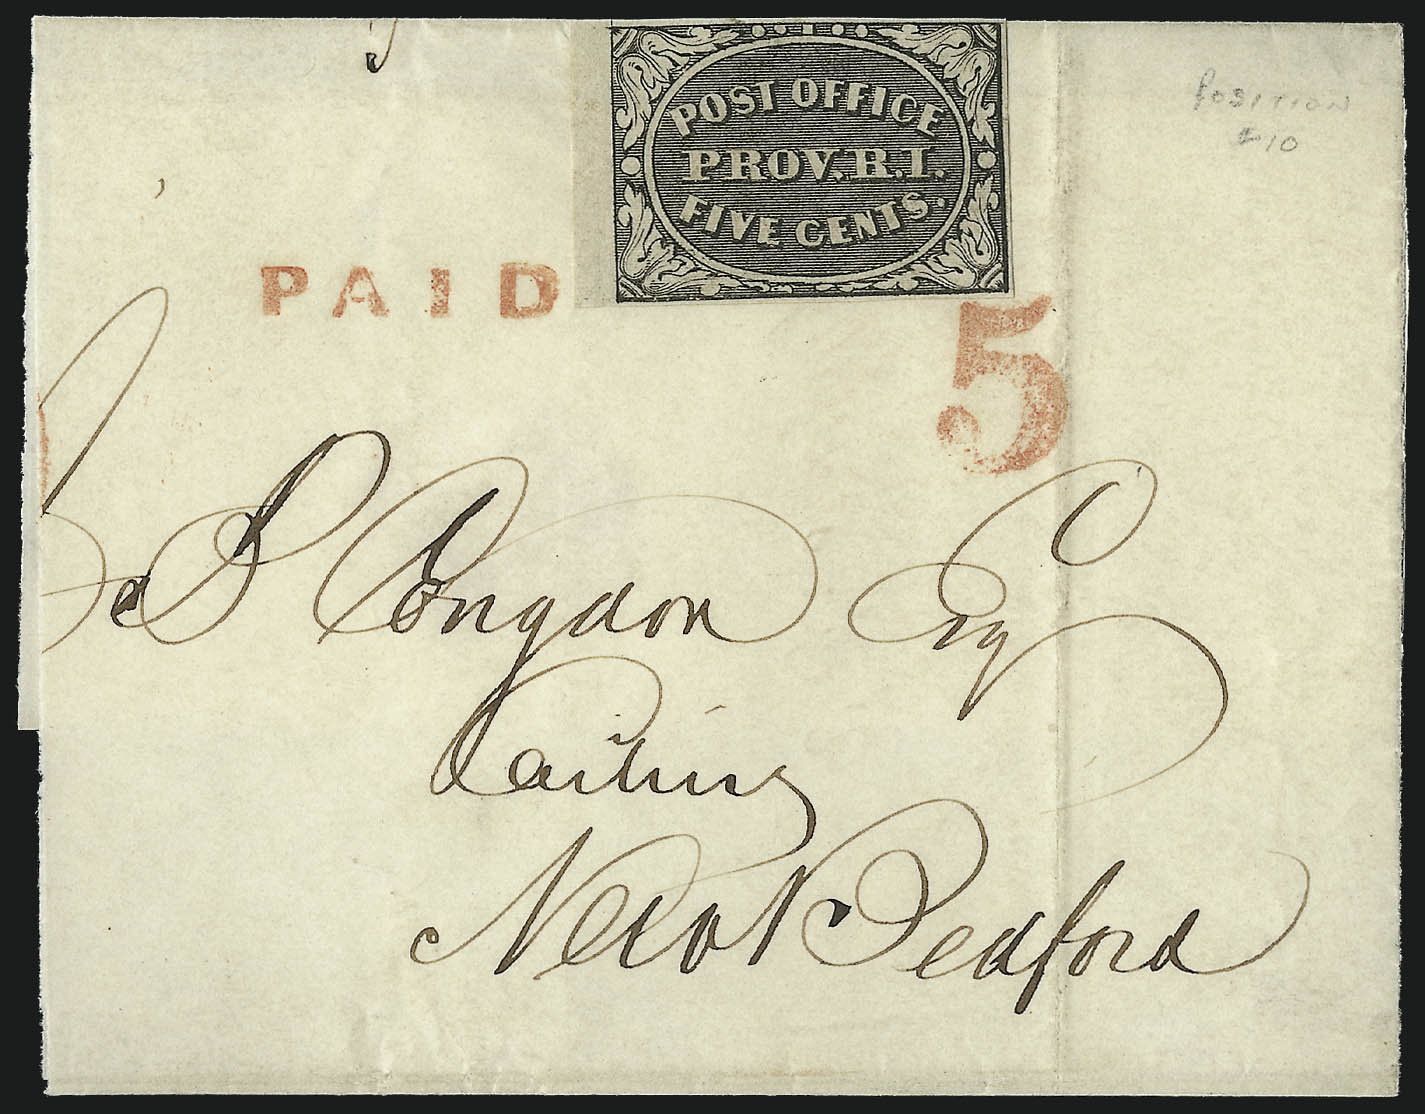 POST OFFICE
PROV. R. I.
FIVE CENTS.
POSITION
#10
PAID
5
Congdon Esq
New Bedford